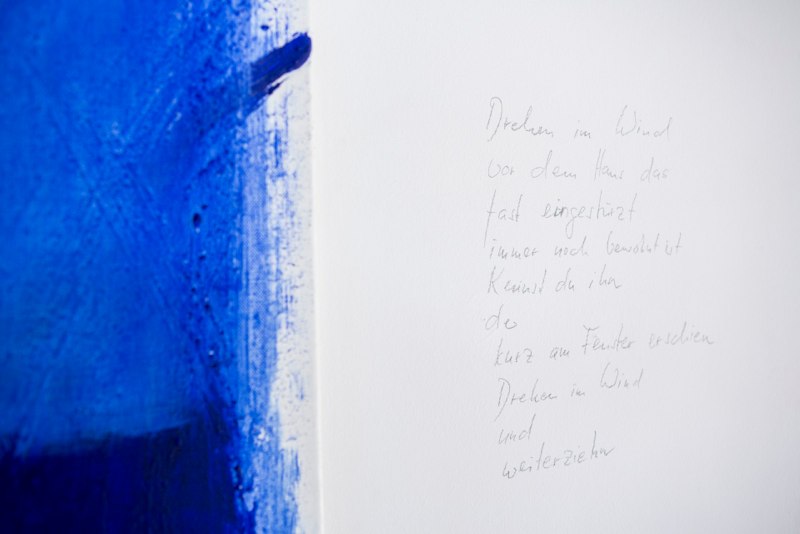 Drehen im Wind
vor dem Haus das
fast eingestürzt
immer noch bewohnt ist
Kennst du ihn
der
kurz am Fenster erschien
Drehen im Wind
und
weiterziehn